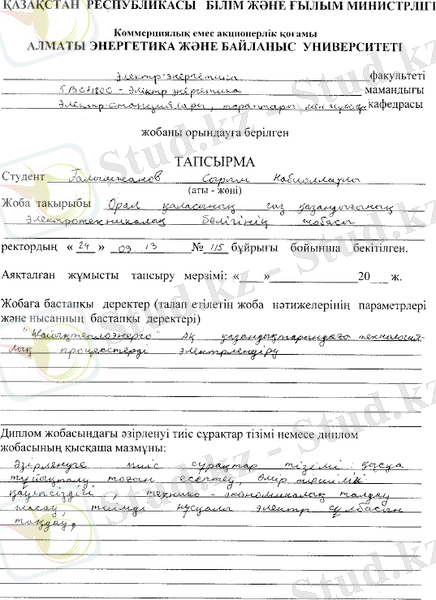 ҚАЗАҚСТАН РЕСПУБЛИКАСЫ БІЛІМ ЖӘНЕ ҒЫЛЫМ МИНИСТРЛІГІ
Коммерциялық емес акционерлік қоғамы
АЛМАТЫ ЭНЕРГЕТИКА ЖӘНЕ БАЙЛАНЫС УНИВЕРСИТЕТІ
Электр энергетика факультеті
электр энергетика мамандығы
Электр станциялары, кафедрасы
жобаны орындауға берілген
ТАПСЫРМА
Студент
(аты - жөні)
Жоба тақырыбы Орал қаласының газ қазандығының
электротехникалық бөлігінің жобасы
ректордың « 24 » 09 13 № 115 бұйрығы бойынша бекітілген.
Аяқталған жұмысты тапсыру мерзімі: « » 20 ж.
Жобаға бастапқы деректер (талап етілетін жоба нәтижелерінің параметрлері
және нысанның бастапқы деректері)
"Жайықтеплоэнерго" АҚ қазандықтарындағы технология-
лық процесстерді электрлендіру
Диплом жобасындағы әзірленуі тиіс сұрақтар тізімі немесе диплом
жобасының қысқаша мазмұны:
Әзірленуге тиіс сұрақтар тізімі қысқа
тұйықталу тоғын есептеу, өмір тіршілік
қауіпсіздігі, технико-экономикалық талдау
жасау, тиімді нұсқалы электр сұлбасын
таңдау,
Stud.kz - Stud.kz
Stud.kz - Stud.kz
Stud.kz - Stud.kz